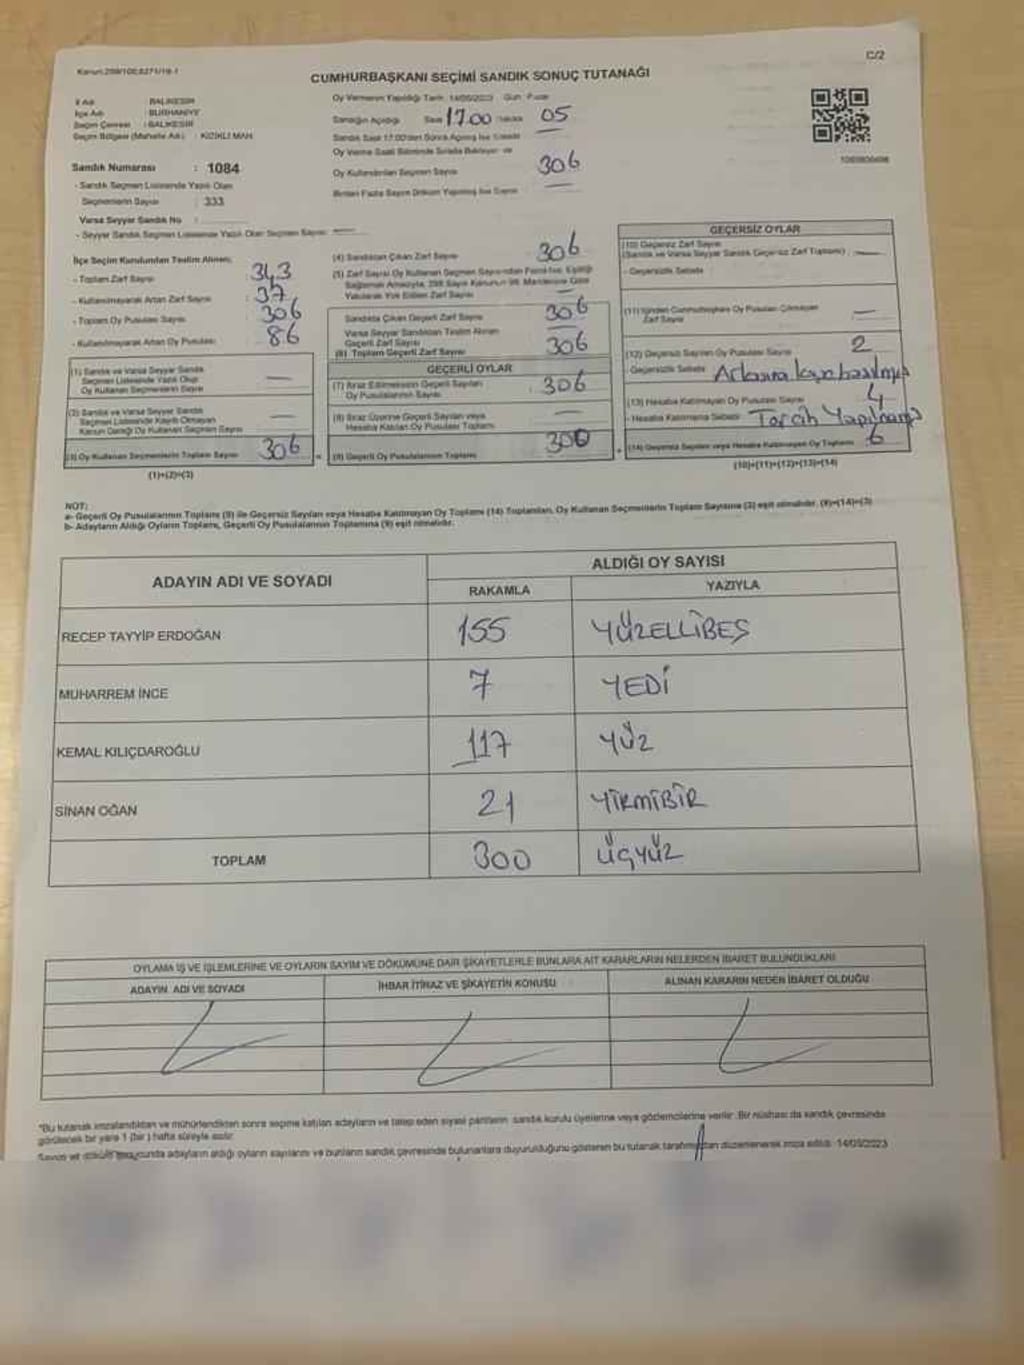 Kanun:298/105;6271/19-1
C/2
CUMHURBAŞKANI SEÇİMİ SANDIK SONUÇ TUTANAĞI
İl Adı : BALIKESİR
İlçe Adı : BURHANİYE
Seçim Çevresi : BALIKESİR
Seçim Bölgesi (Mahalle Adı) : KIZIKLI MAH.
Sandık Numarası : 1084
- Sandık Seçmen Listesinde Yazılı Olan
Seçmenlerin Sayısı : 333
Varsa Seyyar Sandık No :
- Seyyar Sandık Seçmen Listesinde Yazılı Olan Seçmen Sayısı :
Oy Vermenin Yapıldığı Tarih: 14/05/2023 Gün : Pazar
Sandığın Açıldığı Saat 17.00 Dakika 05
Sandık Saat 17:00'den Sonra Açılmış İse Sebebi
Oy Verme Saati Bitiminde Sırada Bekleyen ve
Oy Kullandırılan Seçmen Sayısı 306
Birden Fazla Sayım Döküm Yapılmış İse Sayısı
İlçe Seçim Kurulundan Teslim Alınan;
- Toplam Zarf Sayısı : 343
- Kullanılmayarak Artan Zarf Sayısı : 37
- Toplam Oy Pusulası Sayısı : 306
- Kullanılmayarak Artan Oy Pusulası : 86
(1) Sandık ve Varsa Seyyar Sandık
Seçmen Listesinde Yazılı Olup
Oy Kullanan Seçmenlerin Sayısı
(2) Sandık ve Varsa Seyyar Sandık
Seçmen Listesinde Kayıtlı Olmayan
Kanun Gereği Oy Kullanan Seçmen Sayısı
(3) Oy Kullanan Seçmenlerin Toplam Sayısı 306
(1)+(2)=(3)
(4) Sandıktan Çıkan Zarf Sayısı 306
(5) Zarf Sayısı Oy Kullanan Seçmen Sayısından Fazla İse, Eşitliği
Sağlamak Amacıyla, 298 Sayılı Kanunun 98. Maddesine Göre
Yakılarak Yok Edilen Zarf Sayısı
Sandıkta Çıkan Geçerli Zarf Sayısı 306
Varsa Seyyar Sandıktan Teslim Alınan
Geçerli Zarf Sayısı
(6) Toplam Geçerli Zarf Sayısı 306
GEÇERLİ OYLAR
(7) İtiraz Edilmeksizin Geçerli Sayılan
Oy Pusulalarının Sayısı : 306
(8) İtiraz Üzerine Geçerli Sayılan veya
Hesaba Katılan Oy Pusulası Toplamı
(9) Geçerli Oy Pusulalarının Toplamı 300
GEÇERSİZ OYLAR
(10) Geçersiz Zarf Sayısı
(Sandık ve Varsa Seyyar Sandık Geçersiz Zarf Toplamı) :
- Geçersizlik Sebebi
(11) İçinden Cumhurbaşkanı Oy Pusulası Çıkmayan
Zarf Sayısı
(12) Geçersiz Sayılan Oy Pusulası Sayısı : 2
- Geçersizlik Sebebi :
(13) Hesaba Katılmayan Oy Pusulası Sayısı 4
- Hesaba Katılmama Sebebi : Tercih Yapılmamış
(14) Geçersiz Sayılan veya Hesaba Katılmayan Oy Toplamı 6
(10)+(11)+(12)+(13)=(14)
NOT:
a- Geçerli Oy Pusulalarının Toplamı (9) ile Geçersiz Sayılan veya Hesaba Katılmayan Oy Toplamı (14) Toplamları, Oy Kullanan Seçmenlerin Toplam Sayısına (3) eşit olmalıdır. (9)+(14)=(3)
b- Adayların Aldığı Oyların Toplamı, Geçerli Oy Pusulalarının Toplamına (9) eşit olmalıdır.
ADAYIN ADI VE SOYADI
ALDIĞI OY SAYISI
RAKAMLA YAZIYLA
RECEP TAYYİP ERDOĞAN 155 YÜZELLİBEŞ
MUHARREM İNCE 7 YEDİ
KEMAL KILIÇDAROĞLU 117 YÜZ
SİNAN OĞAN 21 YİRMİBİR
TOPLAM 300 ÜÇYÜZ
OYLAMA İŞ VE İŞLEMLERİNE VE OYLARIN SAYIM VE DÖKÜMÜNE DAİR ŞİKAYETLERLE BUNLARA AİT KARARLARIN NELERDEN İBARET BULUNDUKLARI
ADAYIN ADI VE SOYADI İHBAR İTİRAZ VE ŞİKAYETİN KONUSU ALINAN KARARIN NEDEN İBARET OLDUĞU
"Bu tutanak imzalandıktan ve mühürlendikten sonra seçime katılan adayların ve talep eden siyasi partilerin sandık kurulu üyelerine veya gözlemcilerine verilir. Bir nüshası da sandık çevresinde
görülecek bir yere 1 (bir) hafta süreyle asılır.
Sayım ve döküm sonucunda adayların aldığı oyların sayılarını ve bunların sandık çevresinde bulunanlara duyurulduğunu gösteren bu tutanak tarafımızdan düzenlenerek imza edildi. 14/05/2023